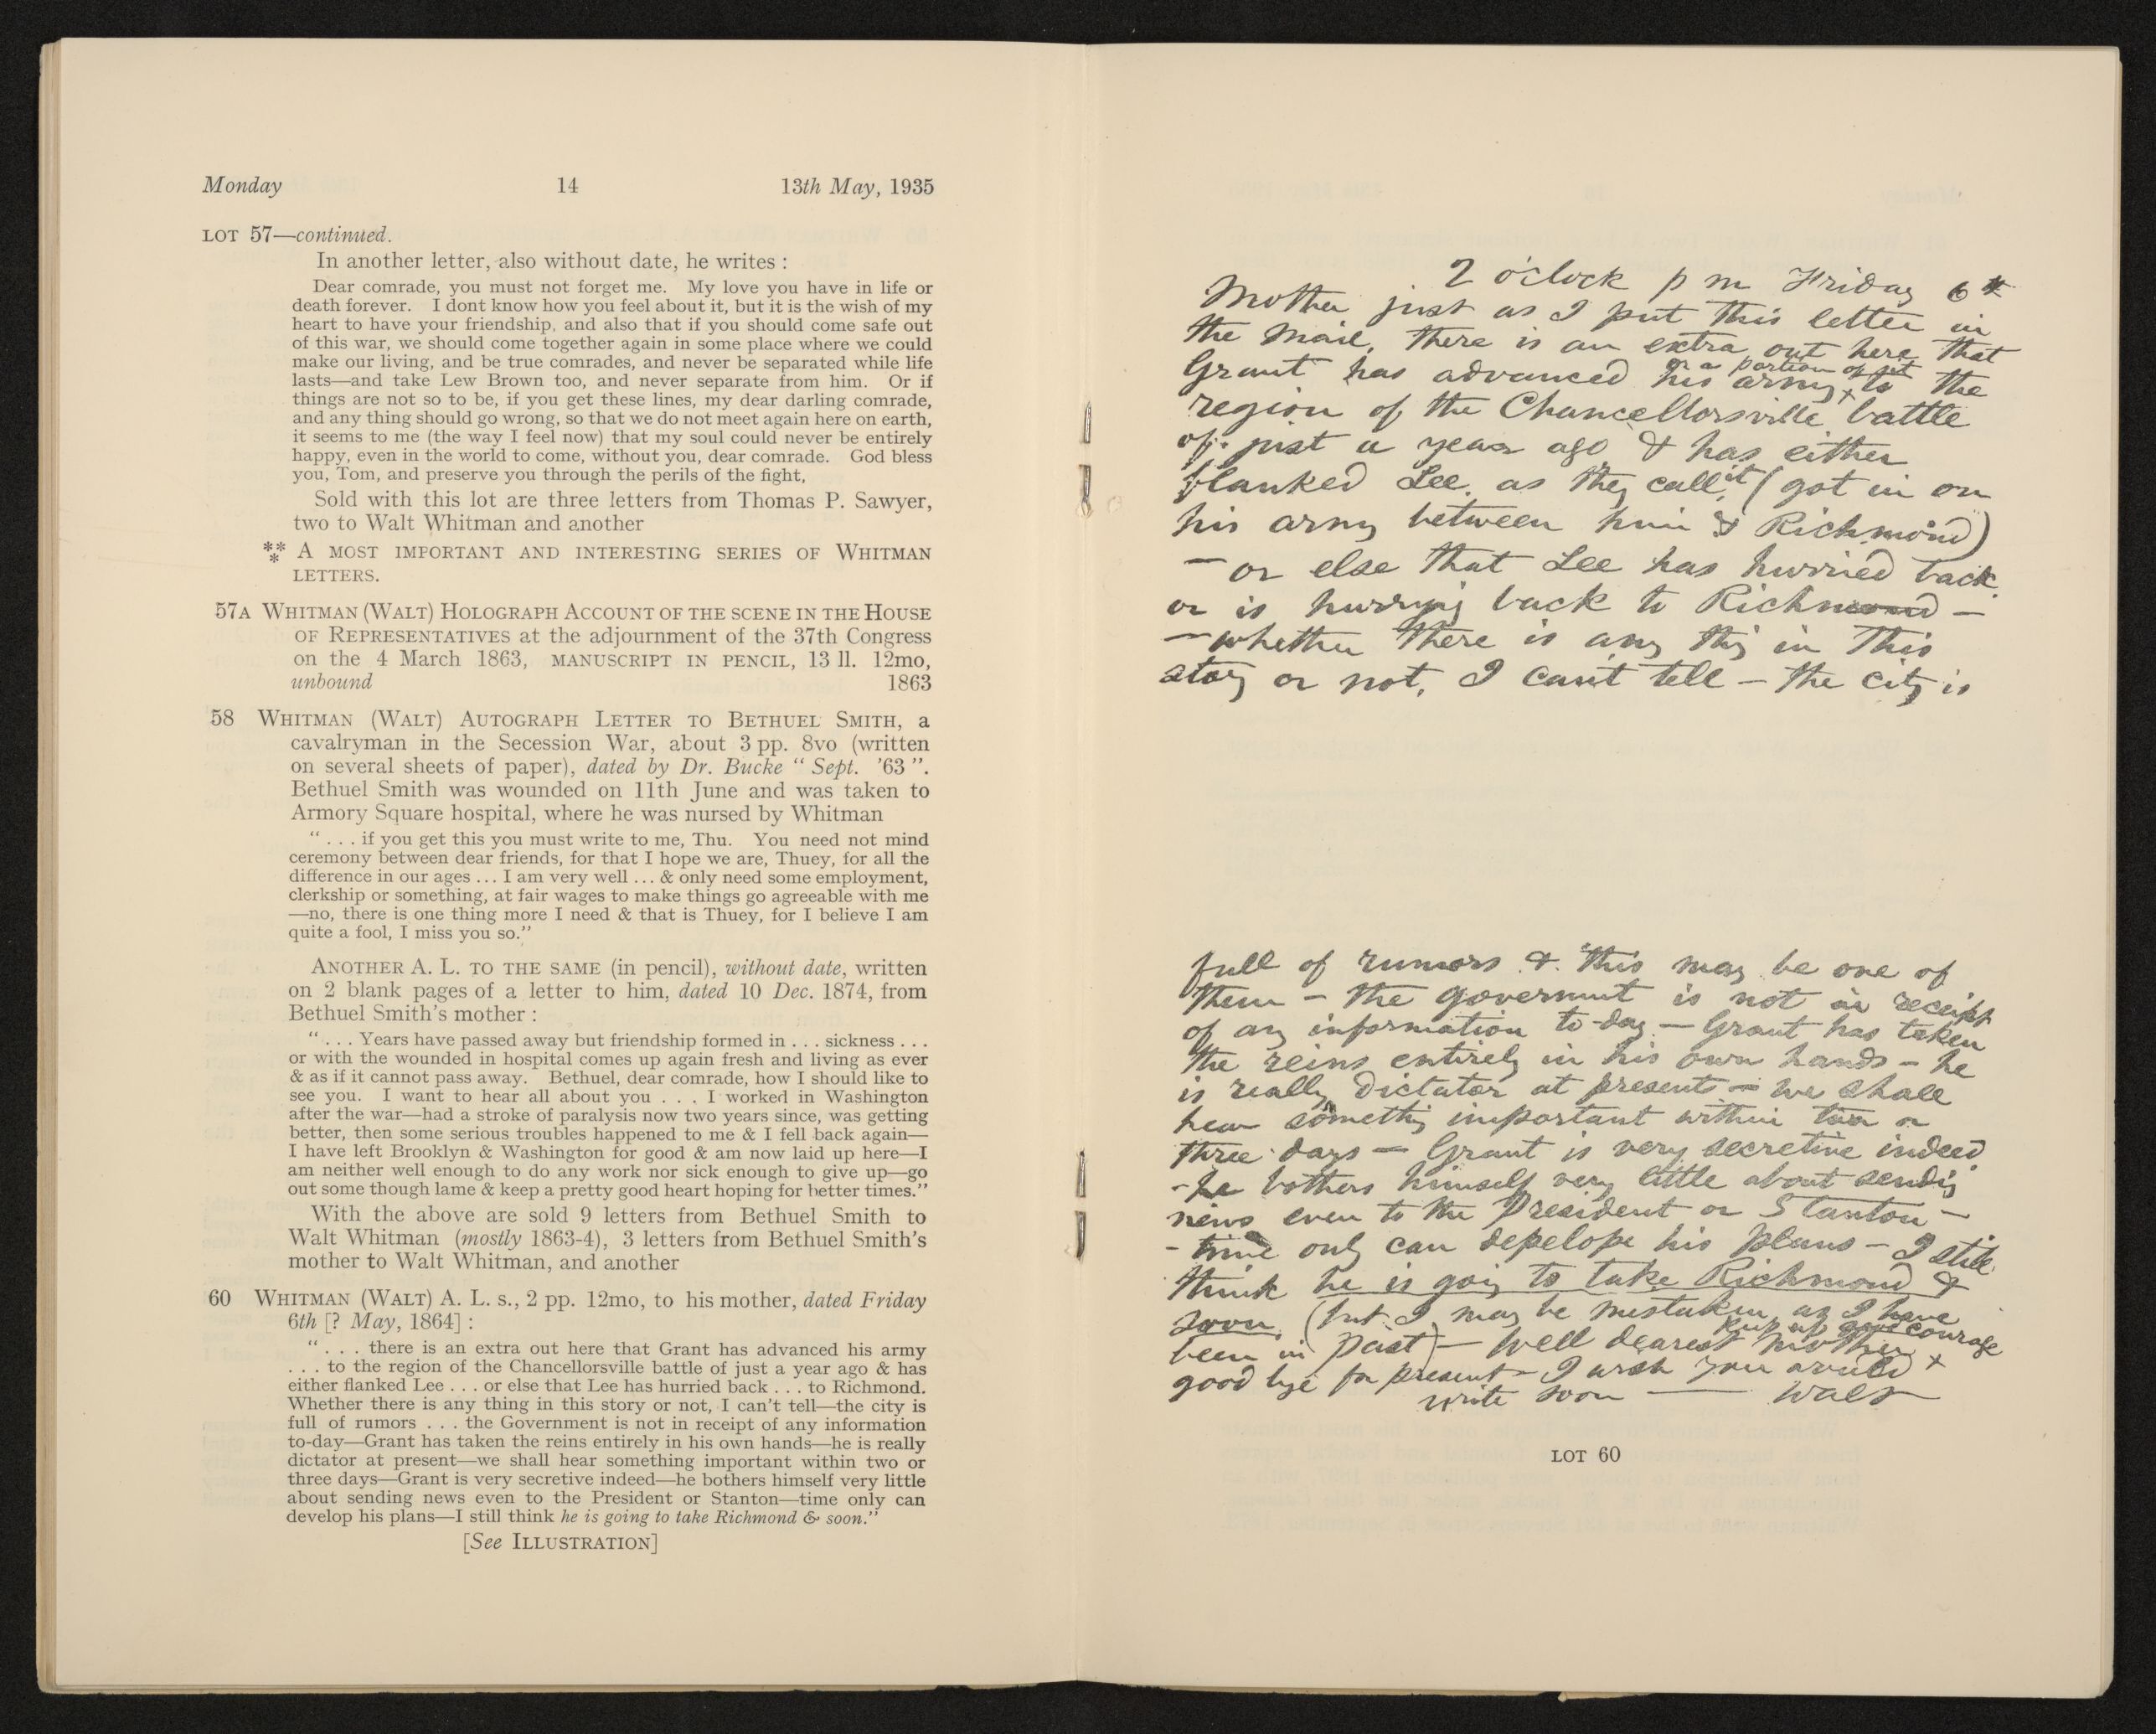 Monday 14 13th May, 1935
LOT 57—continued.
In another letter, also without date, he writes :
Dear comrade, you must not forget me. My love you have in life or
death forever. I dont know how you feel about it, but it is the wish of my
heart to have your friendship, and also that if you should come safe out
of this war, we should come together again in some place where we could
make our living, and be true comrades, and never be separated while life
lasts—and take Lew Brown too, and never separate from him. Or if
things are not so to be, if you get these lines, my dear darling comrade,
and any thing should go wrong, so that we do not meet again here on earth,
it seems to me (the way I feel now) that my soul could never be entirely
happy, even in the world to come, without you, dear comrade. God bless
you, Tom, and preserve you through the perils of the fight,
Sold with this lot are three letters from Thomas P. Sawyer,
two to Walt Whitman and another
*** A MOST IMPORTANT AND INTERESTING SERIES OF WHITMAN
LETTERS.
57A WHITMAN (WALT) HOLOGRAPH ACCOUNT OF THE SCENE IN THE HOUSE
OF REPRESENTATIVES at the adjournment of the 37th Congress
on the 4 March 1863, MANUSCRIPT IN PENCIL, 13 ll. 12mo,
unbound 1863
58 WHITMAN (WALT) AUTOGRAPH LETTER TO BETHUEL SMITH, a
cavalryman in the Secession War, about 3 pp. 8vo (written
on several sheets of paper), dated by Dr. Bucke “ Sept. ’63 ”.
Bethuel Smith was wounded on 11th June and was taken to
Armory Square hospital, where he was nursed by Whitman
“ . . . if you get this you must write to me, Thu. You need not mind
ceremony between dear friends, for that I hope we are, Thuey, for all the
difference in our ages ... I am very well ... & only need some employment,
clerkship or something, at fair wages to make things go agreeable with me
—no, there is one thing more I need & that is Thuey, for I believe I am
quite a fool, I miss you so.”
ANOTHER A. L. TO THE SAME (in pencil), without date, written
on 2 blank pages of a letter to him, dated 10 Dec. 1874, from
Bethuel Smith’s mother :
“ . . . Years have passed away but friendship formed in . . . sickness . . .
or with the wounded in hospital comes up again fresh and living as ever
& as if it cannot pass away. Bethuel, dear comrade, how I should like to
see you. I want to hear all about you . . . I worked in Washington
after the war—had a stroke of paralysis now two years since, was getting
better, then some serious troubles happened to me & I fell back again—
I have left Brooklyn & Washington for good & am now laid up here—I
am neither well enough to do any work nor sick enough to give up—go
out some though lame & keep a pretty good heart hoping for better times.”
With the above are sold 9 letters from Bethuel Smith to
Walt Whitman (mostly 1863-4), 3 letters from Bethuel Smith’s
mother to Walt Whitman, and another
60 WHITMAN (WALT) A. L. s., 2 pp. 12mo, to his mother, dated Friday
6th [? May, 1864] :
“ . . . there is an extra out here that Grant has advanced his army
. . . to the region of the Chancellorsville battle of just a year ago & has
either flanked Lee . . . or else that Lee has hurried back . . . to Richmond.
Whether there is any thing in this story or not, I can’t tell—the city is
full of rumors . . . the Government is not in receipt of any information
to-day—Grant has taken the reins entirely in his own hands—he is really
dictator at present—we shall hear something important within two or
three days—Grant is very secretive indeed—he bothers himself very little
about sending news even to the President or Stanton—time only can
develop his plans—I still think he is going to take Richmond & soon.”
[See ILLUSTRATION]
2 o'clock p m Friday 6th
Mother just as I put this letter in
the mail, there is an extra out here that
or a portion of it
Grant has advanced his army to the
region of the Chancellorsville battle
of just a year ago & has either
flanked Lee, as they call it (got in on
his army between him & Richmond)
— or else that Lee has hurried back,
or is hurrying back to Richmond —
— whether there is any thing in this
story or not, I can't tell — the city is
full of rumors & this may be one of
them — the government is not in receipt
of any information to-day — Grant has taken
the reins entirely in his own hands — he
is really dictator at present — we shall
hear something important within two or
three days — Grant is very secretive indeed
— he bothers himself very little about sending
news even to the President or Stanton —
— time only can develope his plans — I still
think he is going to take Richmond &
soon, (but I may be mistaken as I have
been in past) — Well dearest mother keep up courage
good bye for present — I wish you would
write soon — Walt
LOT 60